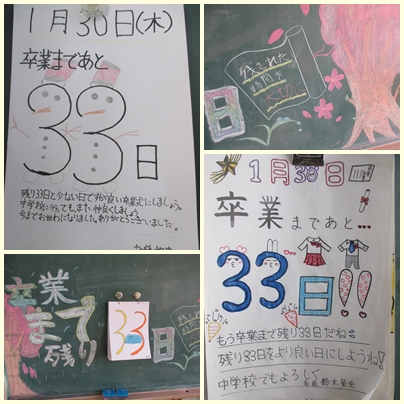 1月30日(木)
卒業まであと
33日
残り33日と少ない日ですが良い卒業式にしましょう。
中学校に行ってもまた仲良くしましょう。
今までお世わになりました。ありがとうございました。
残された
時間を
日
卒業
まで
残り
33
日
残された
時間
1月30日
卒業まであと…
33日!!
もう卒業まで残り33日だね
残り33日をより良い日にしようね!
中学校でもよろしく
名前 鈴木